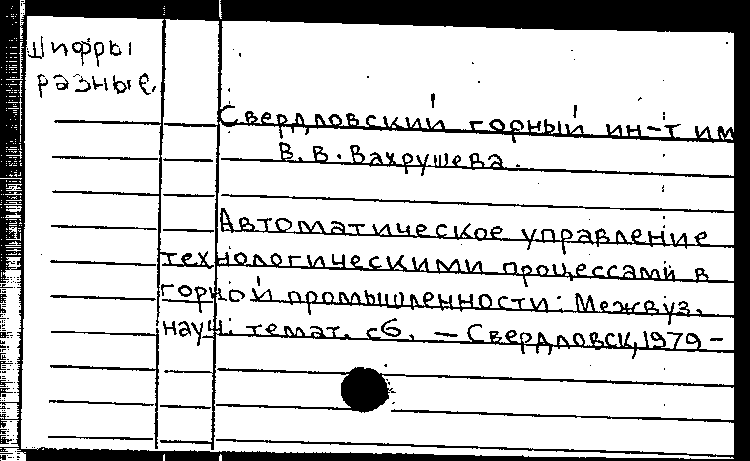 Шифры
разные
Свердловский горный ин-т им
В. В. Вахрушева.
Автоматическое управление
технологическими процессами в
горной промышленности: Межвуз.
науч. темат. сб. — Свердловск, 1979 –